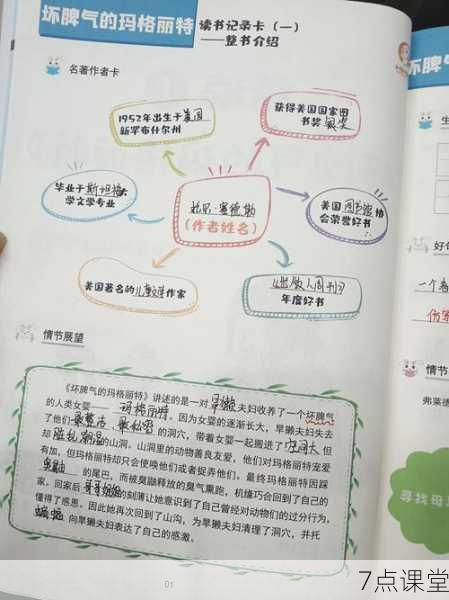 坏脾气的玛格丽特
读书记录卡（一）
——整书介绍
名著作者卡
1952年出生于美国
新罕布什尔州
获得美国国家图
书奖银奖
毕业于斯坦福大
学文学专业
(作者姓名)
美国图书馆协
会荣誉好书
美国著名的儿童文学作家
《出版人周刊》
年度好书
情节展望
《坏脾气的玛格丽特》讲述的是一对旱獭夫妇收养了一个坏脾气
的人类女婴 玛格丽特。因为女婴的逐渐长大，旱獭夫妇失去
了他们 的洞穴，带着女婴一起搬进了空间大但
却 的山洞。山洞里的动物善良友爱，他们对玛格丽特宠爱
有加，但玛格丽特却只会使唤他们或者捉弄他们。最终玛格丽特因踩
臭鼬的尾巴，而被臭鼬释放的臭气熏跑，机缘巧合回到了自己的
家。回家后哥哥姐姐的刻薄让她意识到了自己曾经对动物们的过分行为，
懂得了感恩。因此她再次回到了山沟，为旱獭夫妇清理了洞穴，并托
蝙蝠向旱獭夫妇表达了自己的感激。
01
坏脾
生
好句
一个春
伤害
情节
弗莱德
寻找母
7点课堂